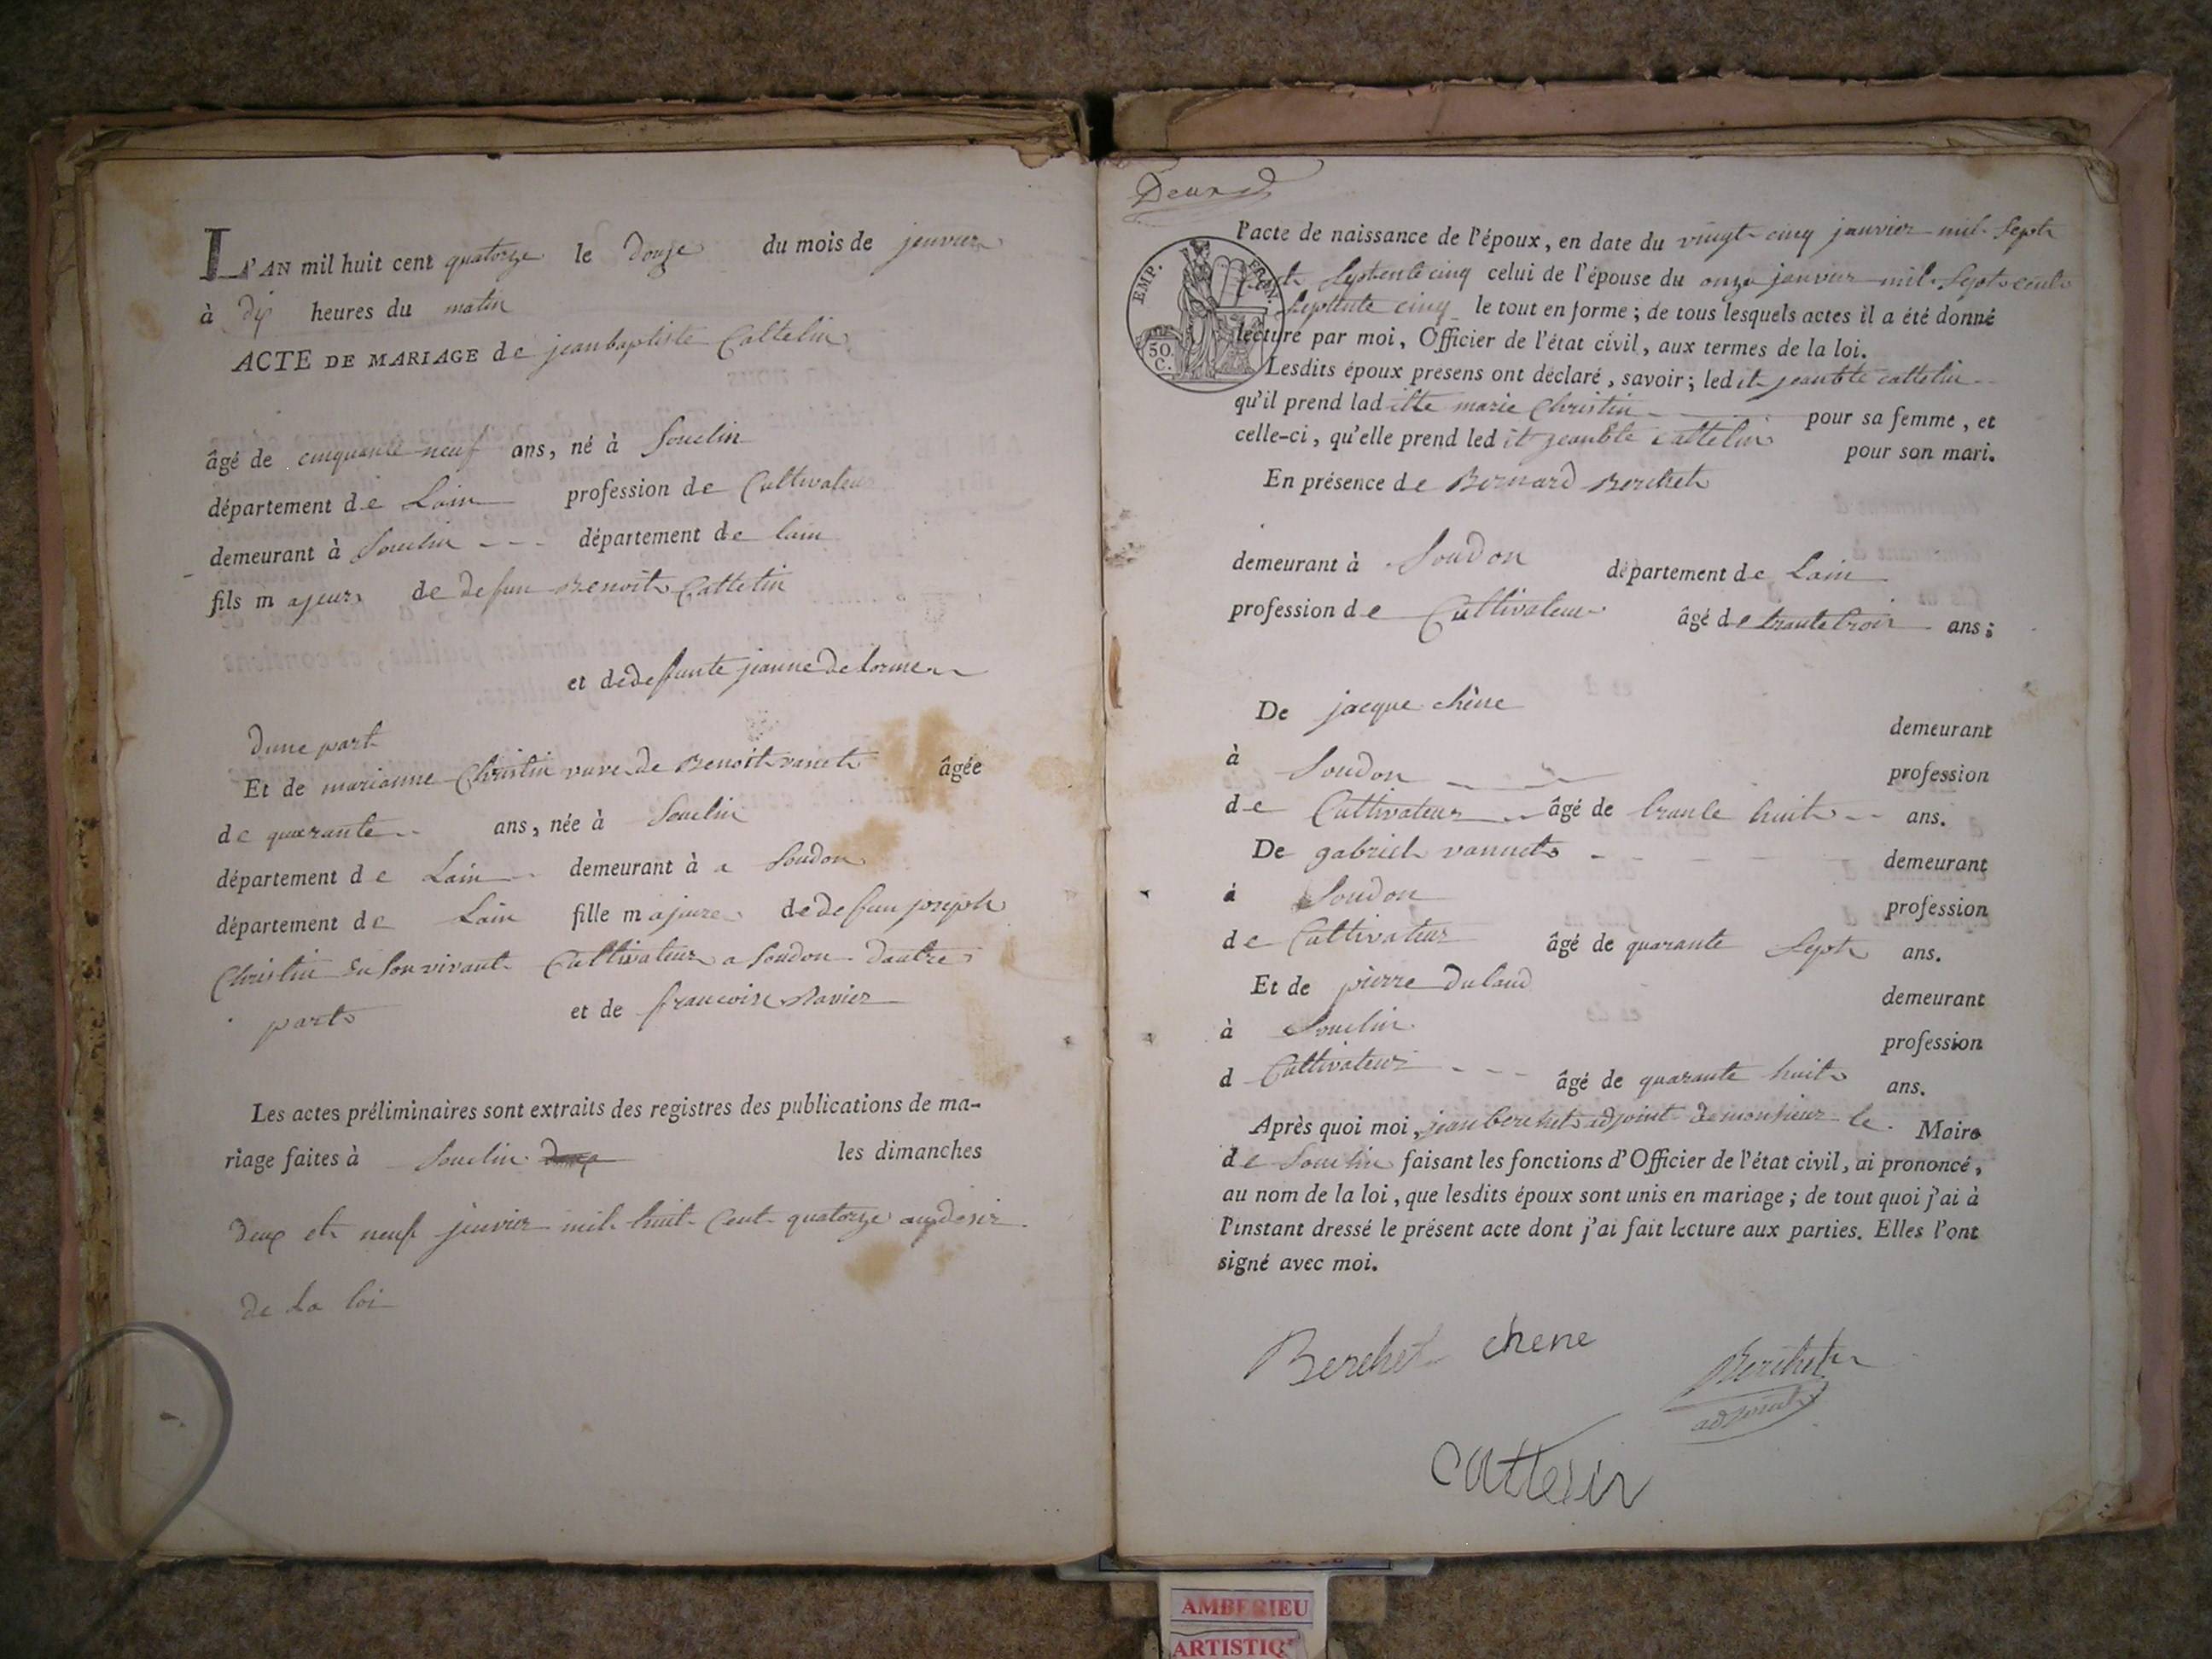 L'AN mil huit cent quatorze le douze du mois de jenvier
à dix heures du matin
ACTE DE MARIAGE de jean baptiste Cattelin
âgé de cinquante neuf ans, né à Souclin
département de Lain profession de Cultivateur
demeurant à Souclin --- département de lain
fils majeur de defun Benoit Cattelin
et de defunte jeanne delorme
dune part
Et de marianne Christin vuve de Benoit vanet âgée
de quarante ans, née à Souclin
département de Lain demeurant à a Soudon
département de Lain fille majeure de defun joseph
Christin en son vivant Cultivateur a Soudon dautre
part et de francoise
Les actes préliminaires sont extraits des registres des publications de ma-
riage faites à Souclin les dimanches
deux et neuf jenvier mil huit cent quatorze au desir
de la loi
Deux
l'acte de naissance de l'époux, en date du vingt cinq janvier mil sept
cent septente cinq celui de l'épouse du onze janvier mil sept cent
septente cinq le tout en forme; de tous lesquels actes il a été donné
lecture par moi, Officier de l'état civil, aux termes de la loi.
EMP. FRAN.
50. C.
Lesdits époux présens ont déclaré, savoir; led it jean bte cattelin
qu'il prend lad itte marie Christin pour sa femme, et
celle-ci, qu'elle prend led it jean bte cattelin pour son mari.
En présence de Bernard Berchet
demeurant à Soudon département de Lain
profession de Cultivateur âgé de trante trois ans;
De jacque chêne demeurant
à Soudon profession
de Cultivateur âgé de trante huit ans.
De gabriel vannet demeurant
à Soudon profession
de Cultivateur âgé de quarante sept ans.
Et de pierre dulaud demeurant
à Souclin profession
d Cultivateur --- âgé de quarante huit ans.
Après quoi moi, jean berchet adjoint de monsieur le Maire
de Souclin faisant les fonctions d'Officier de l'état civil, ai prononcé,
au nom de la loi, que lesdits époux sont unis en mariage; de tout quoi j'ai à
l'instant dressé le présent acte dont j'ai fait lecture aux parties. Elles l'ont
signé avec moi.
Berchet chene Berchet
adjoint
cattelin
AMBERIEU
ARTISTIQ